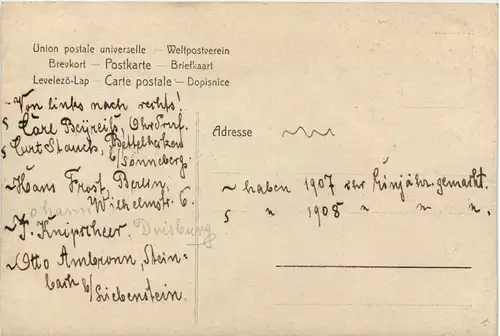 Union postale universelle — Weltpostverein
Brevkort — Postkarte — Briefkaart
Levelezö-Lap — Carte postale — Dopisnice
~ Von links nach rechts!
s Carl Beyreiß, Ohrdruf.
s Curt Stauch, Bettelhecken
b/Sonneberg.
~ Hans Frost, Berlin,
Wilhelmstr. 6.
~ F. Knipscheer. Duisburg
~ Otto Ambronn, Stein-
bach b/Liebenstein.
Adresse
~ haben 1907 ihr Einjähr. gemacht.
s " 1908 " " "